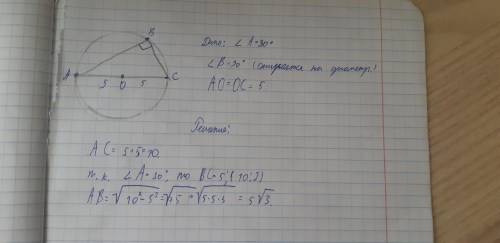 B
Дано: ∠A=30°
∠B=90° (опирается на диаметр!)
A 5 O 5 C
AO=OC=5
Решение:
AC=5+5=10.
т.к. ∠A=30°, то BC=5, (10:2)
AB=√10²-5²=√75=√5·5·3 = 5√3.